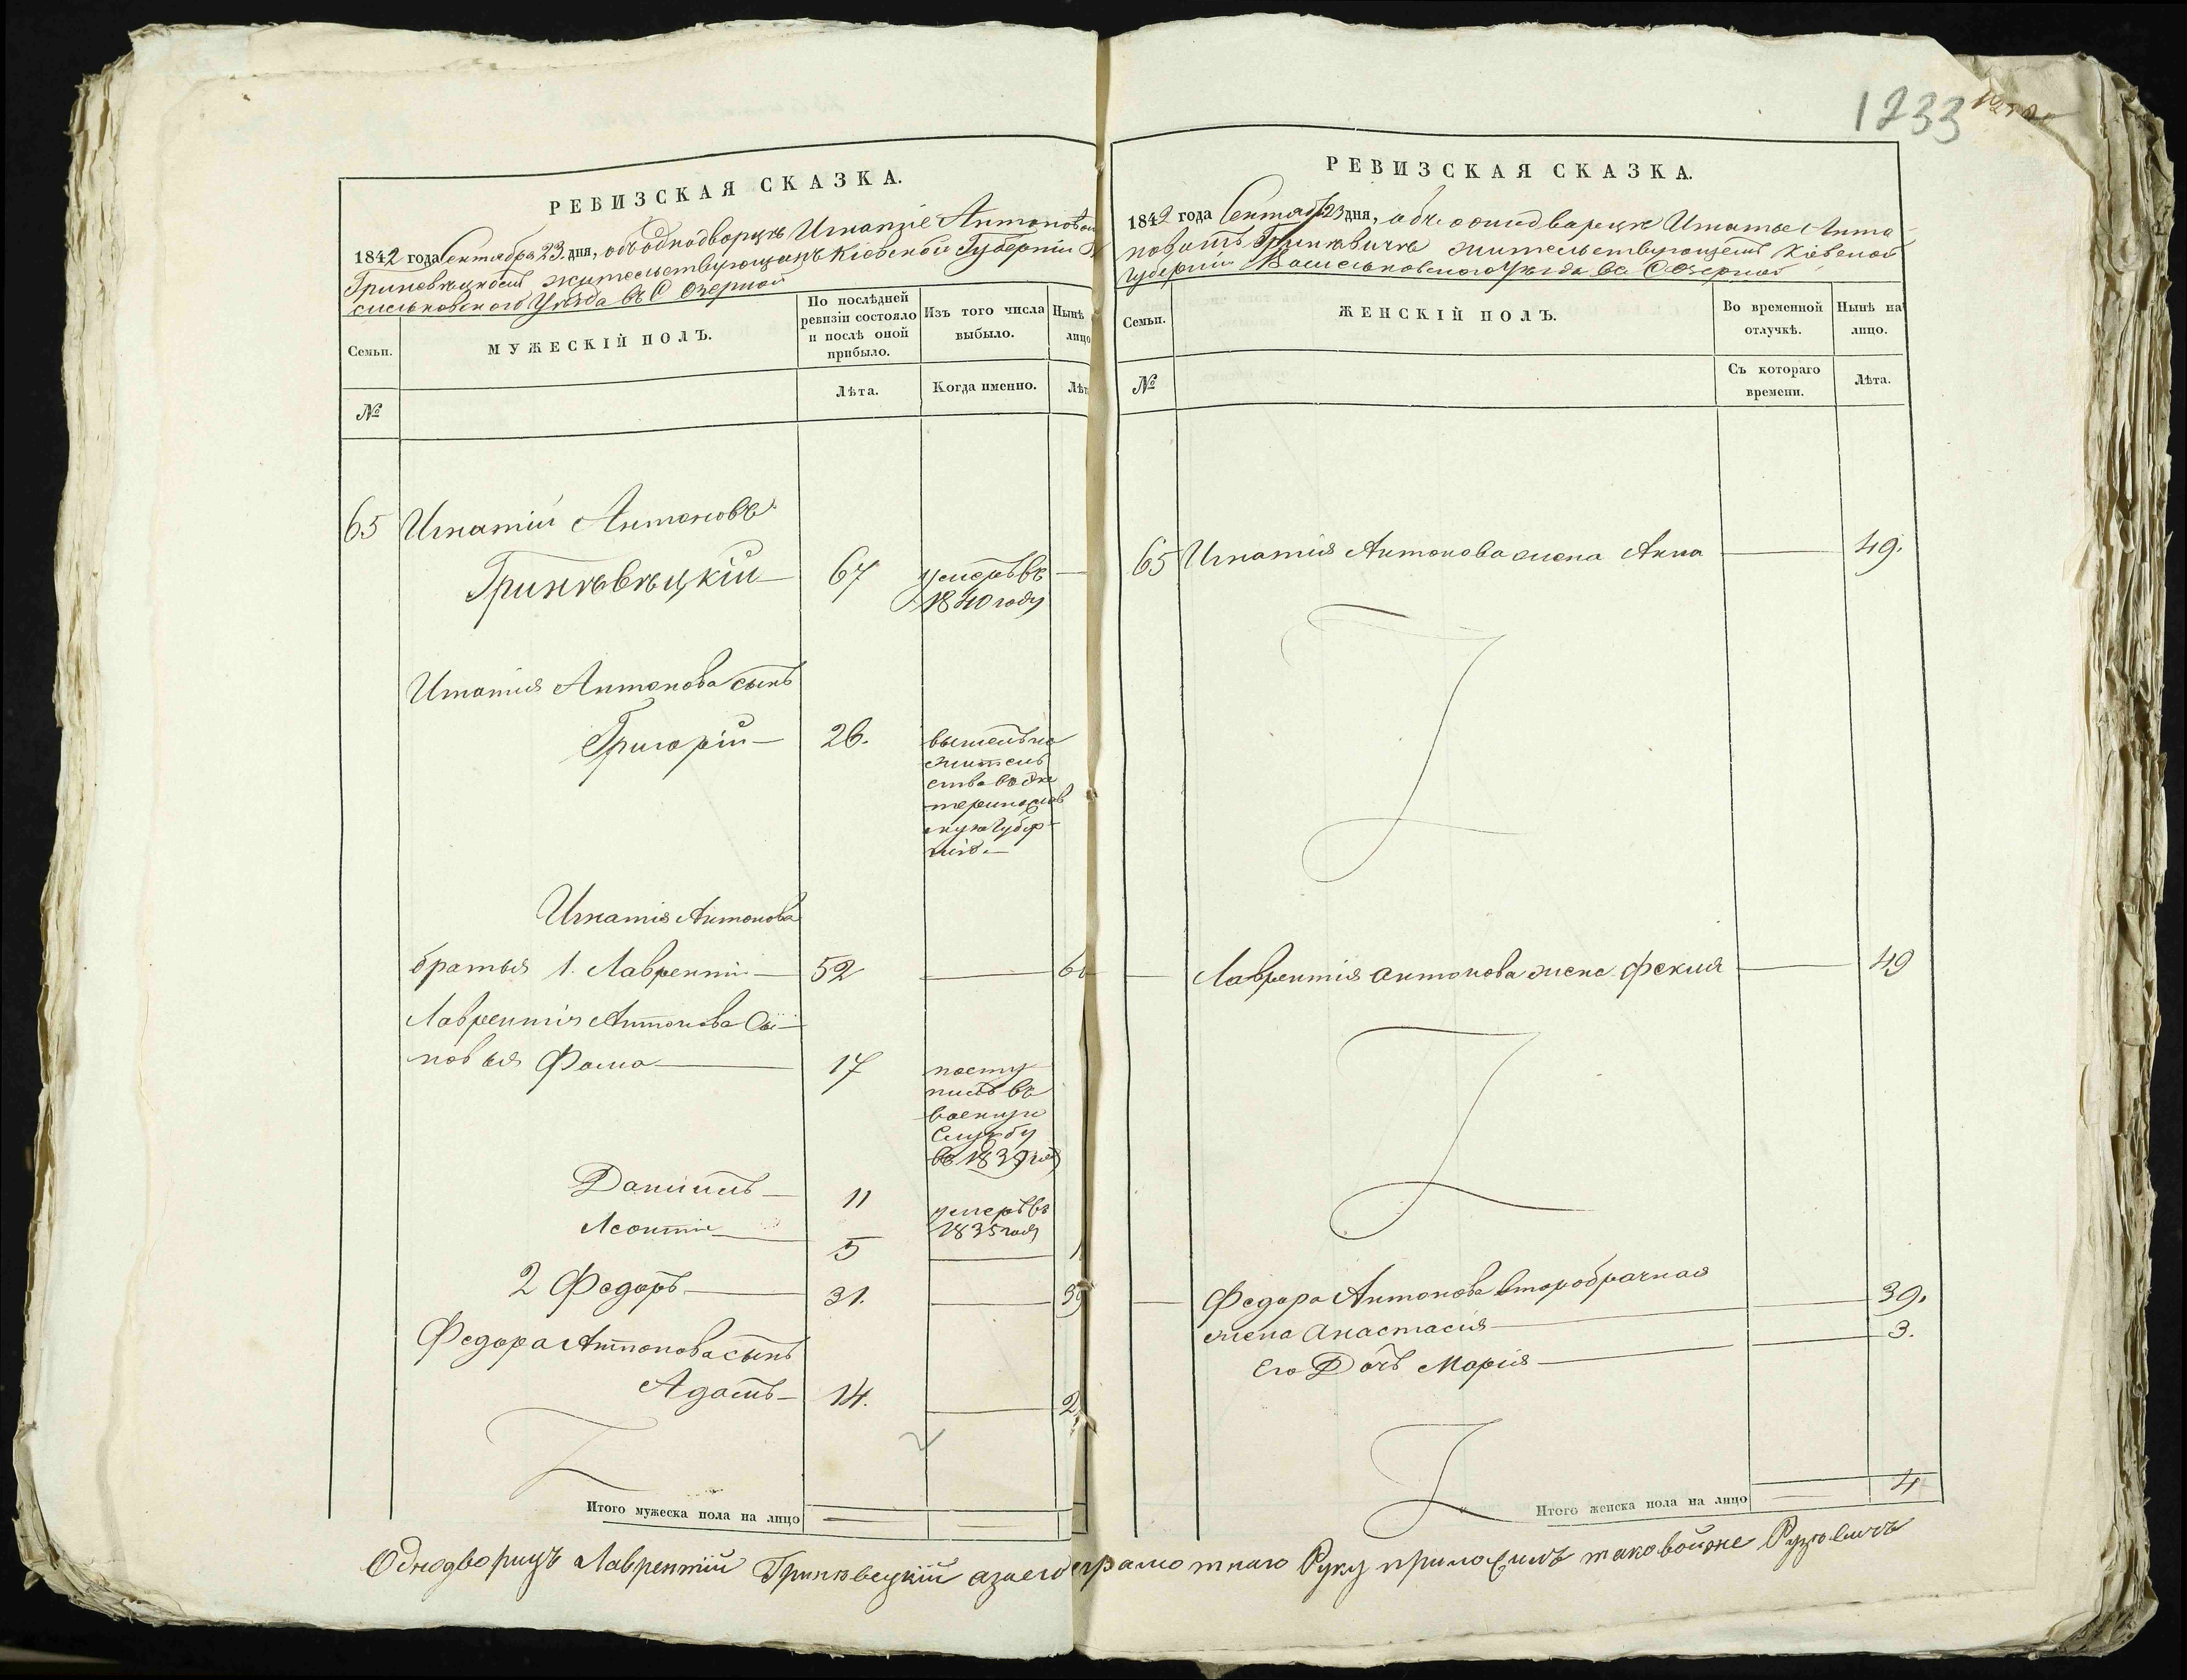 1233
РЕВИЗСКАЯ СКАЗКА.
1842 года Сентября 23 дня, объ однодворцѣ Игнатіе Антоновѣ
Гриневѣцкомъ жительствующемъ Кіевской Губерніи
сильковскаго Уѣзда въ С Озерной
Семьи.
МУЖЕСКІЙ ПОЛЪ.
По послѣдней ревизіи состояло и послѣ оной прибыло.
Изъ того числа выбыло.
Нынѣ лицо
№
Лѣта.
Когда именно.
Лѣт
65 Игнатій Антоновъ
Гринѣвѣцкій 67 умеръ въ
1840 году
Игнатія Антонова сынъ
Григорій 26. вышелъ на
житель
ство въ Ека
теринослав
скую Губер
нію.
Игнатія Антонова
братья 1. Лаврентій 52 6
Лаврентія Антонова Сы
новья Фома 17 посту
пилъ въ
военную
Службу
въ 1839 год
Даніилъ 11 умеръ въ
1835 году
Леонтій 5 1
2 Федоръ 31. 39
Федора Антонова сынъ
Адамъ 14. 2
Итого мужеска пола на лицо
РЕВИЗСКАЯ СКАЗКА.
1842 года Сентяб 23 дня, объ однодворцѣ Игнатіе Анто
новомъ жительствующемъ Кіевской
Губерніи Васильковскаго Уѣзда въ С Озерной
Семьи.
ЖЕНСКІЙ ПОЛЪ.
Во временной отлучкѣ.
Нынѣ на лицо.
№
Съ котораго времени.
Лѣта.
65 Игнатія Антонова жена Анна 49.
Лаврентія Антонова жена Фекия 49
Федора Антонова второбрачная
жена Анастасія 39.
Его Дочь Марія 3.
Итого женска пола на лицо 4
Однодворицъ Лаврентій Гринѣвецкій а за его грамотнаго Руку приложилъ таковойже